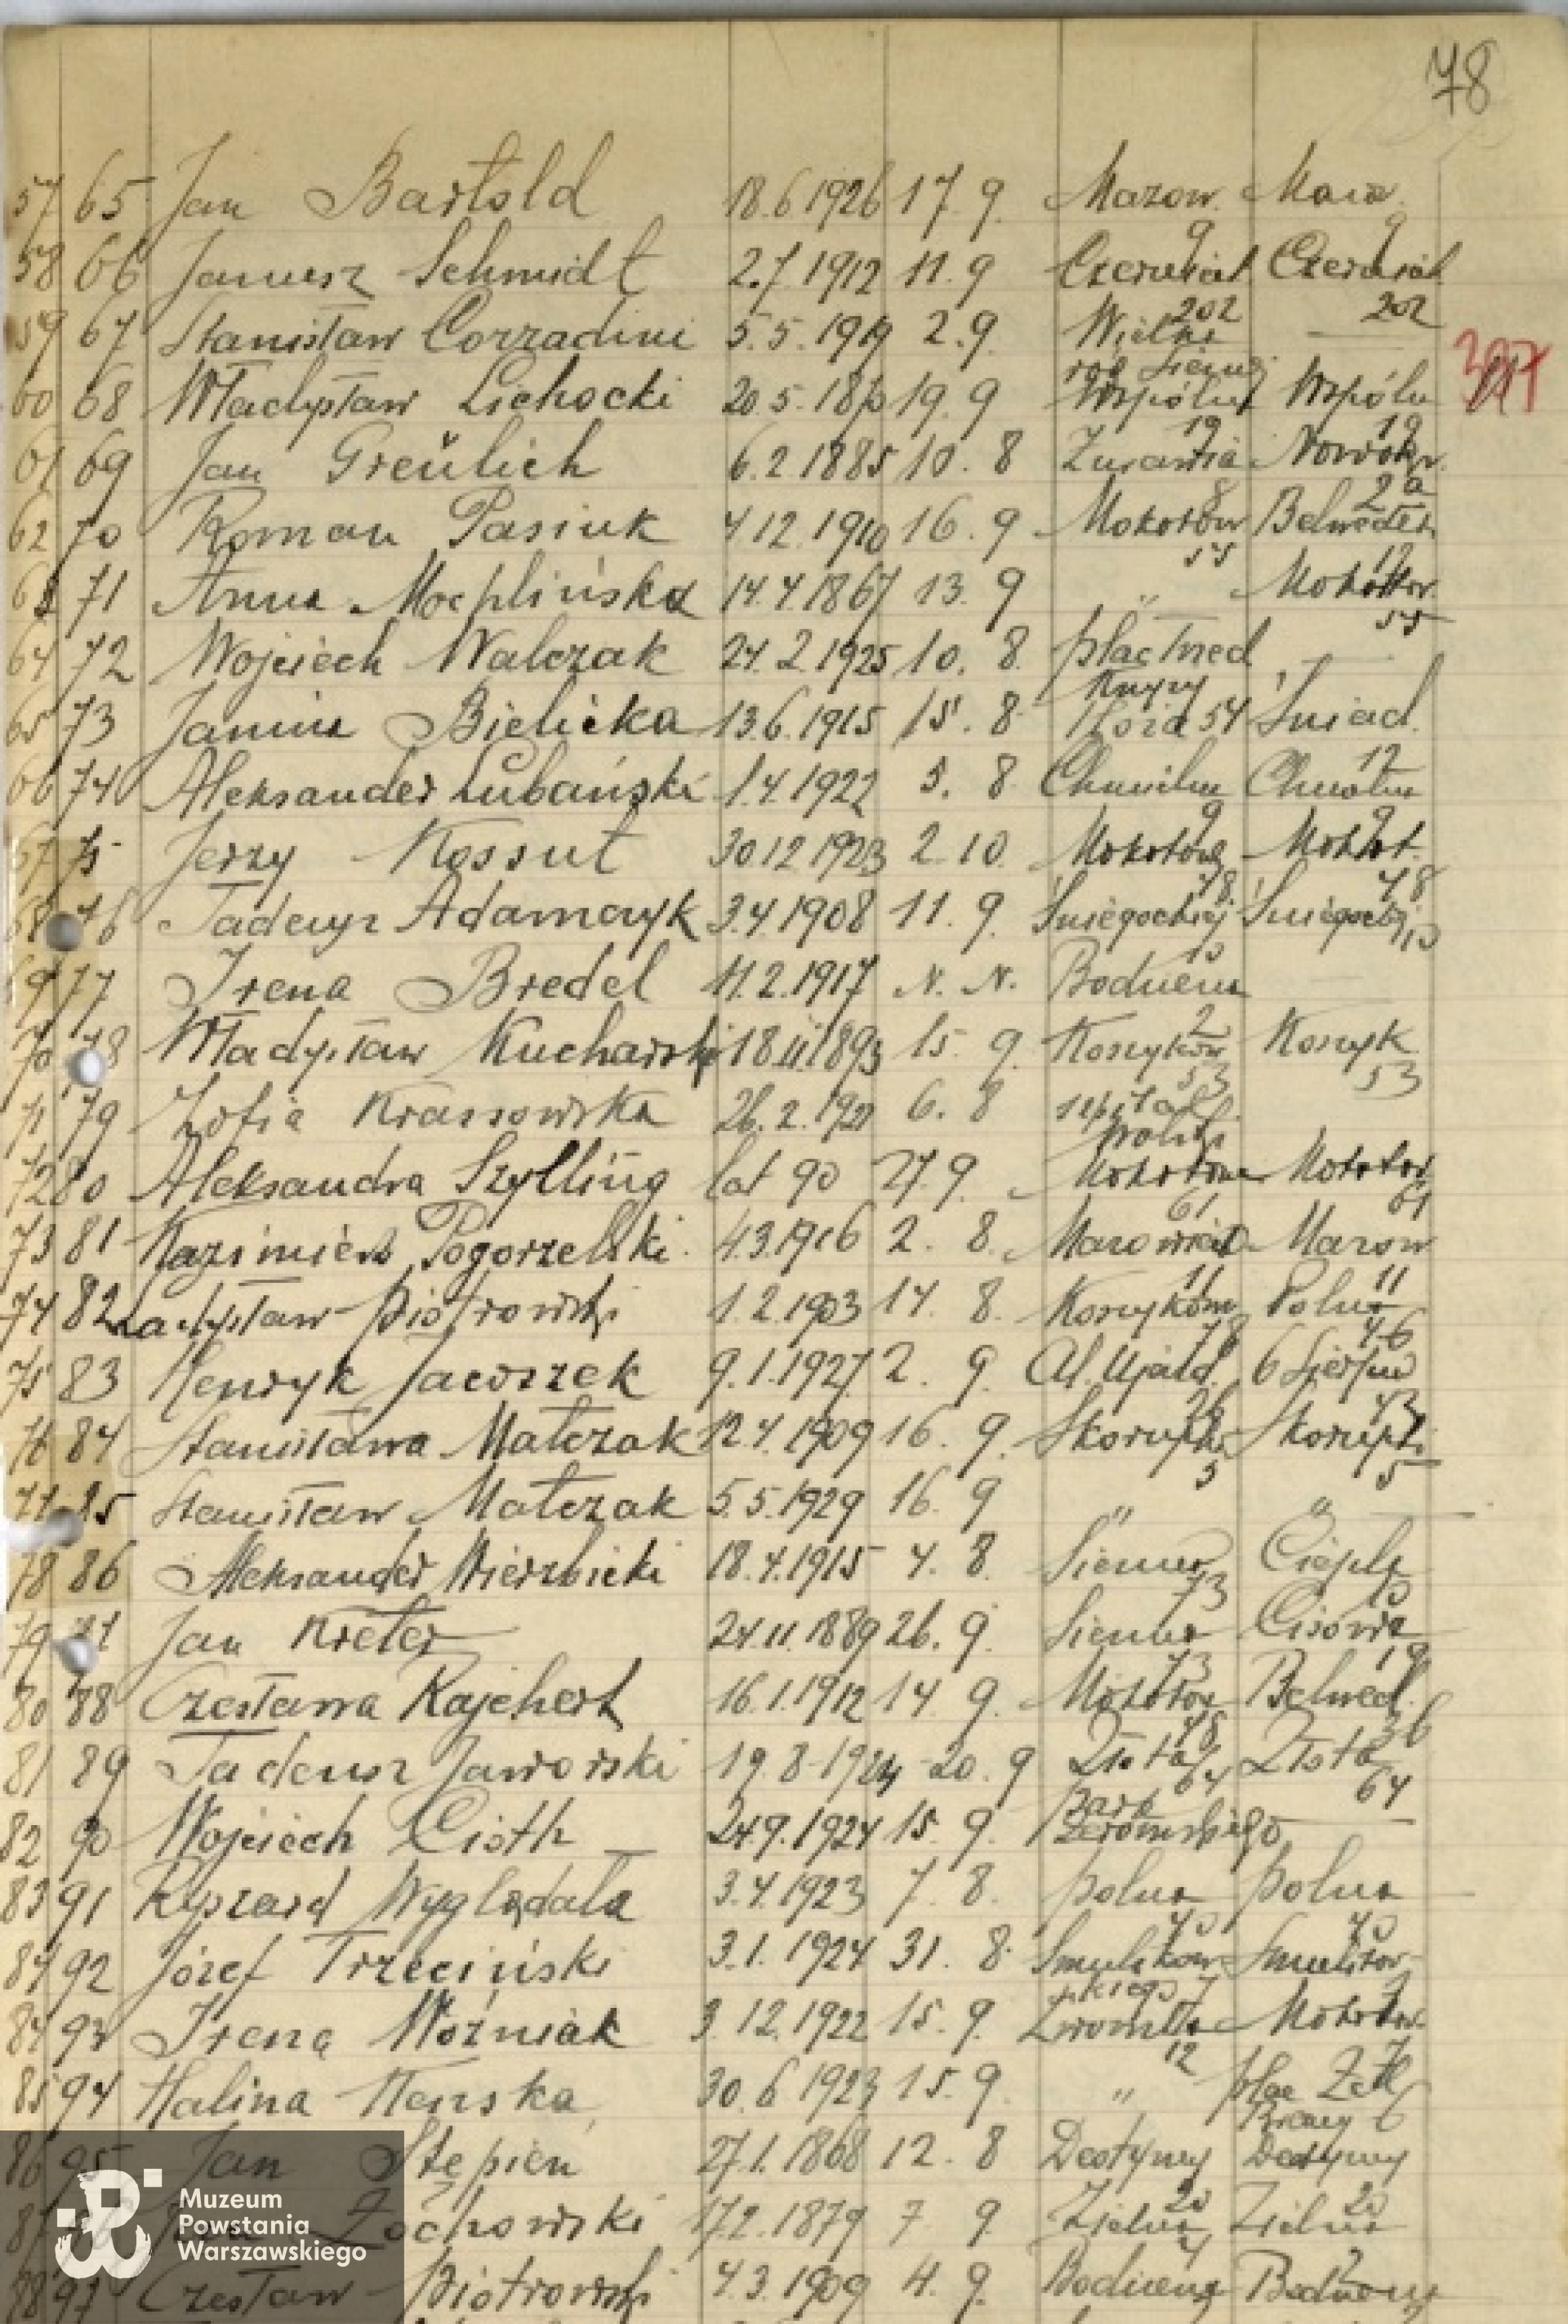 78
57 65 Jan Bartold 18.6.1926 17. 9. Mazow. 9 Mazow. 9
58 66 Janusz Schmidt 2.7.1912 11. 9 Czerniak. 202 Czerniak. 202
59 67 Stanisław Corradini 5.5.1919 2. 9. Wielka róg Siennej —
60 68 Władysław Lichocki 20.5. 19. 9 Wspólna 19 Wspóln 19
61 69 Jan Greülich 6.2.1885 10. 8 Żurawia 8 Nowogr. 2a
62 70 Roman Pasiuk 4.12.1910 16. 9 Mokotów 55 Belweder. 12
63 71 Anna 14.4.1867 13. 9 " Mokotow. 55
64 72 Wojciech Walczak 24.2.1925 10. 8. plac Trzech Krzyży —
65 73 Janina Bielicka 13.6.1915 15. 8 Hoża 54 Śniad. 12
66 74 Aleksander Łubański 1.4.1922 5. 8 Chmielna 9 9
67 75 Jerzy Kossut 30.12.1923 2.10. Mokotows 48 Mokot. 48
68 76 Tadeusz Adamczyk 3.4.1908 11. 9. Śniegockiej 10 Śniegockiej 10
69 77 Irena Bredel 11.2.1917 N. N. Boduena 2
70 78 Władysław Kucharski 18.11.1893 15. 9. Koszykow 53 Koszyk 53
71 79 Zofia Krassowska 26.2.1921 6. 8 szpital Wolski
72 80 Aleksandra Szylling lat 90 27. 9. Mokotow 61 Mokotow. 61
73 81 Kazimierz Pogorzelski. 4.3.1916 2. 8. Mazowiec 11 Mazow 11
74 82 Ładysław Piotrowski 1.2.1903 14. 8. Koszykow 78 Polna 46
75 83 Henryk Jaroszek 9.1.1927 2. 9. Al. Ujazd. 26 6 Sierpnia 43
76 84 Stanisława Matczak 12.4.1909 16. 9. Skorupki 5 Skorupki 5
77 85 Stanisław Matczak 5.5.1929 16. 9 " "
78 86 Aleksander Wierzbicki 18.4.1915 4. 8. Sienna 73 Ciepła
79 87 Jan Kreter 24.11.1889 26. 9. Sienna 73 Cisowa 19
80 88 Czesława Rajchert 16.1.1912 14. 9. Mokotow 48 Belwed. 36
81 89 Tadeusz Jaworski 19.8.1924 20. 9 Złota 64 Złota 64
82 90 Wojciech Cioth 24.9.1924 15. 9. Park Żeromskiego —
83 91 Ryszard Wyglądała 3.4.1923 7. 8. Polna 40 Polna 40
84 92 Józef Trzeciński 3.1.1924 31. 8. Smulikowskiego 7 Smulikow
84 93 Irena Woźniak 3.12.1922 15. 9. 12 Mokotow.
85 94 Halina Kenska 30.6.1923 15. 9. " plac Żel. Bramy 6
86 95 Jan Stępień 27.1.1868 12. 8 20 20
87 Żochowski 17.2.1879 7 9 Zielna Zielna
88 97 Czesław Piotrowski 4.3.1909 4. 9. Boduena Boduena
Muzeum
Powstania
Warszawskiego